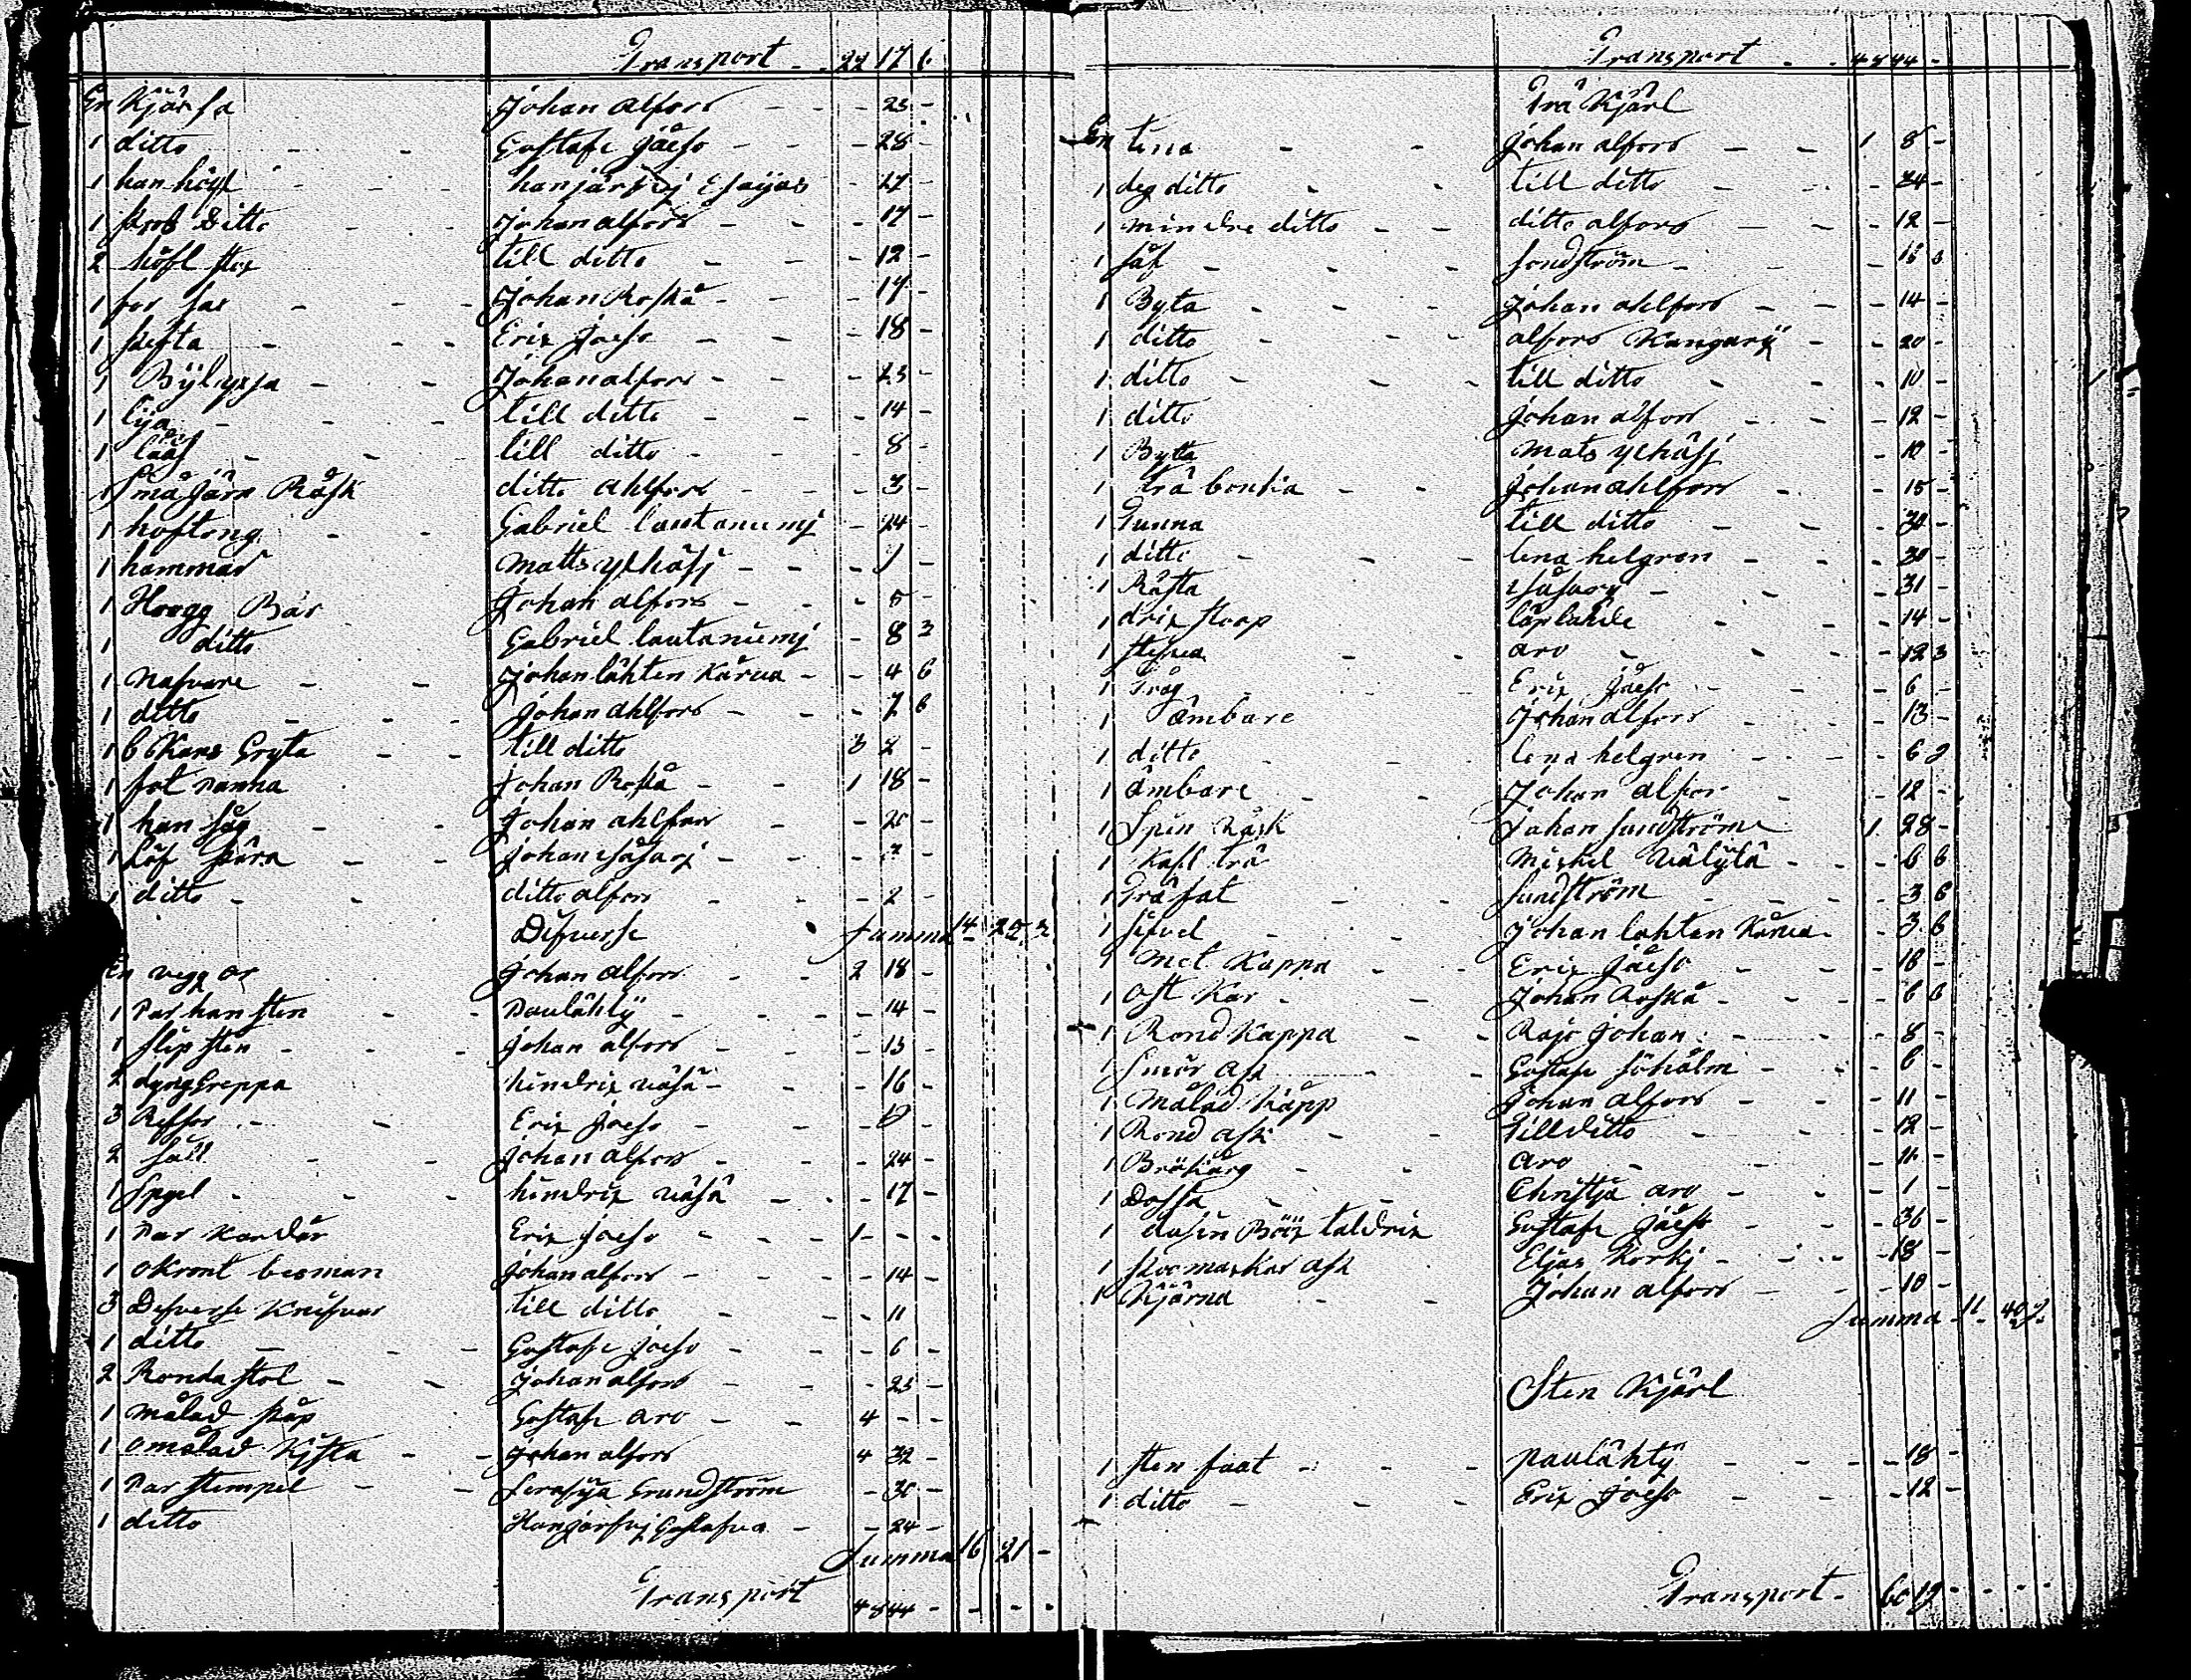 Transport - - 22 17 6
En Kjärra Johan Alfors - - - 23 -
1 ditto - - Gustafu Jäeso - - - 28 -
1 han höfl - - - hanjärfvj Esaijas - 27 -
1 skrob Ditto - - Johan alfors - - - 17 -
2 höfl stox - - till ditto - - - 12 -
1 - - Johan Roskä - - - 17 -
1 skefta - - - Erix Joeso - - - 18 -
1 Bÿlyxsa - - Johan alfors - - - 23 -
1 lija - - - till ditto - - - 14 -
1 låås - - - till ditto - - - 8 -
1 små järn Räsk ditto Ahlfors - - - 3 -
1 hoftong - - Gabriel lautaniemj - 24 -
1 hammar Matts ylhäsj - - - 1 -
1 Hoogg Bär Johan Alfors - - - 5 -
1 ditto Gabriel lautaniemj - 8 3
1 Nafvare - - Johan lähten Karva - - 4 6
1 ditto - - - Johan Ahlfors - - - 7 6
1 6 Kans Gryta - - till ditto 3 2 -
1 fot panna Johan Roskä - - 1 18 -
1 han såg - - Johan ahlfors - - 20 -
1 Löf skära - - Johan - - - -
1 ditto - - ditto alfors - - - 2 -
Difverse Summa 14 25 2
En vegg or Johan Alfors - - 2 18 -
1 Par han sten - - Paulähtÿ - - - 14 -
1 slip sten - - - Johan alfors - - - 13 -
2 dyng Greppa hindrix väsä - - - 16 -
3 Ressor - - Erix Joeso - - -
2 såll - - Johan alfors - - - 24 -
1 Spgel - - - hindrix väsä - - - 17 -
1 Par Kardår Erix Joeso - - - 1 - - -
1 okrönt besman Johan alfors - - - 14 -
3 Difverse Knifvar till ditto - - - 11
1 ditto - - - Gustafu Joeso - - - 6 -
2 Ronda stol - - Johan alfors - - - 23 -
1 målad skåp Gustafu aro - - 4 - -
1 omålad Kjsta - - Johan alfors 4 32 -
1 Par stempel - - Serafija Grundström - 30 -
1 ditto Hanjärfvj Gustafva - - 24 -
Summa 16 21 -
Transport 4844 - - - -
Transport - - 4844 -
Trä Kjärl
En tina - - Johan alfors - - 1 8 -
1 deg ditto - - till ditto - - - 24 -
1 mindre ditto - - ditto alfors - - - 12 -
1 såf - - - sondström - - - 13 3
1 Byta - - - Johan ahlfors - - - 14 -
1 ditto - - alfors Kangarÿ - - 20 -
1 ditto - - - till ditto - - - 10 -
1 ditto Johan alfors - - - 12 -
1 Bytta Mats ylhäsj - 10 -
1 trä bonka - - Johan ahlfors - - 15 -
1 Tunna till ditto - - - 30 -
1 ditto - - - lena helgren - - - 30 -
1 Räfsa - - - 31 -
1 drix stoop laplande - - - 14 -
1 - - aro - - - 12 3
1 Tråg - - Erix Jäeso - - - 6 -
1 ämbare Johan alfors - - - 13 -
1 ditto - - lena helgren - - - 6 2
1 ämbare - - Johan alfor - - - 12 -
1 Spin Råsk Johan sundströme 1 28 -
1 Kafl trä Mickel välÿtä - - - 6 6
1 Trä fat - - sundström - - - 3 6
1 - - Johan lahten Karva - - 3 6
1 Met Kappa - - Erix Jäeso - - - 18 -
1 Ost Kar - - Johan Roskä - - - 6 6
1 Rond Kappa - - Rajo Johan - - - 8 -
1 Smör ask - - Gustafu söholm - - - 6 -
1 Målad Käpp Johan alfors - - - 11 -
1 Rond ask - - Till ditto - - - 12 -
1 Brökårg - - aro - - - 11 -
1 Dossa - - Christja aro - - - 1 -
1 dusin Bötz taldrix Gustafu Jäeso - - - 36 -
1 skoomaskar ask Eljas Korkj - - - 18 -
1 Kjärna - - Johan alfors - - - 10 -
Summa - 11 40 2
Sten Kjärl
1 sten faat - - - Paulähtÿ - - - 18 -
1 ditto - - - Erix Joeso - - - 12 -
Transport - 60 19 - - - -